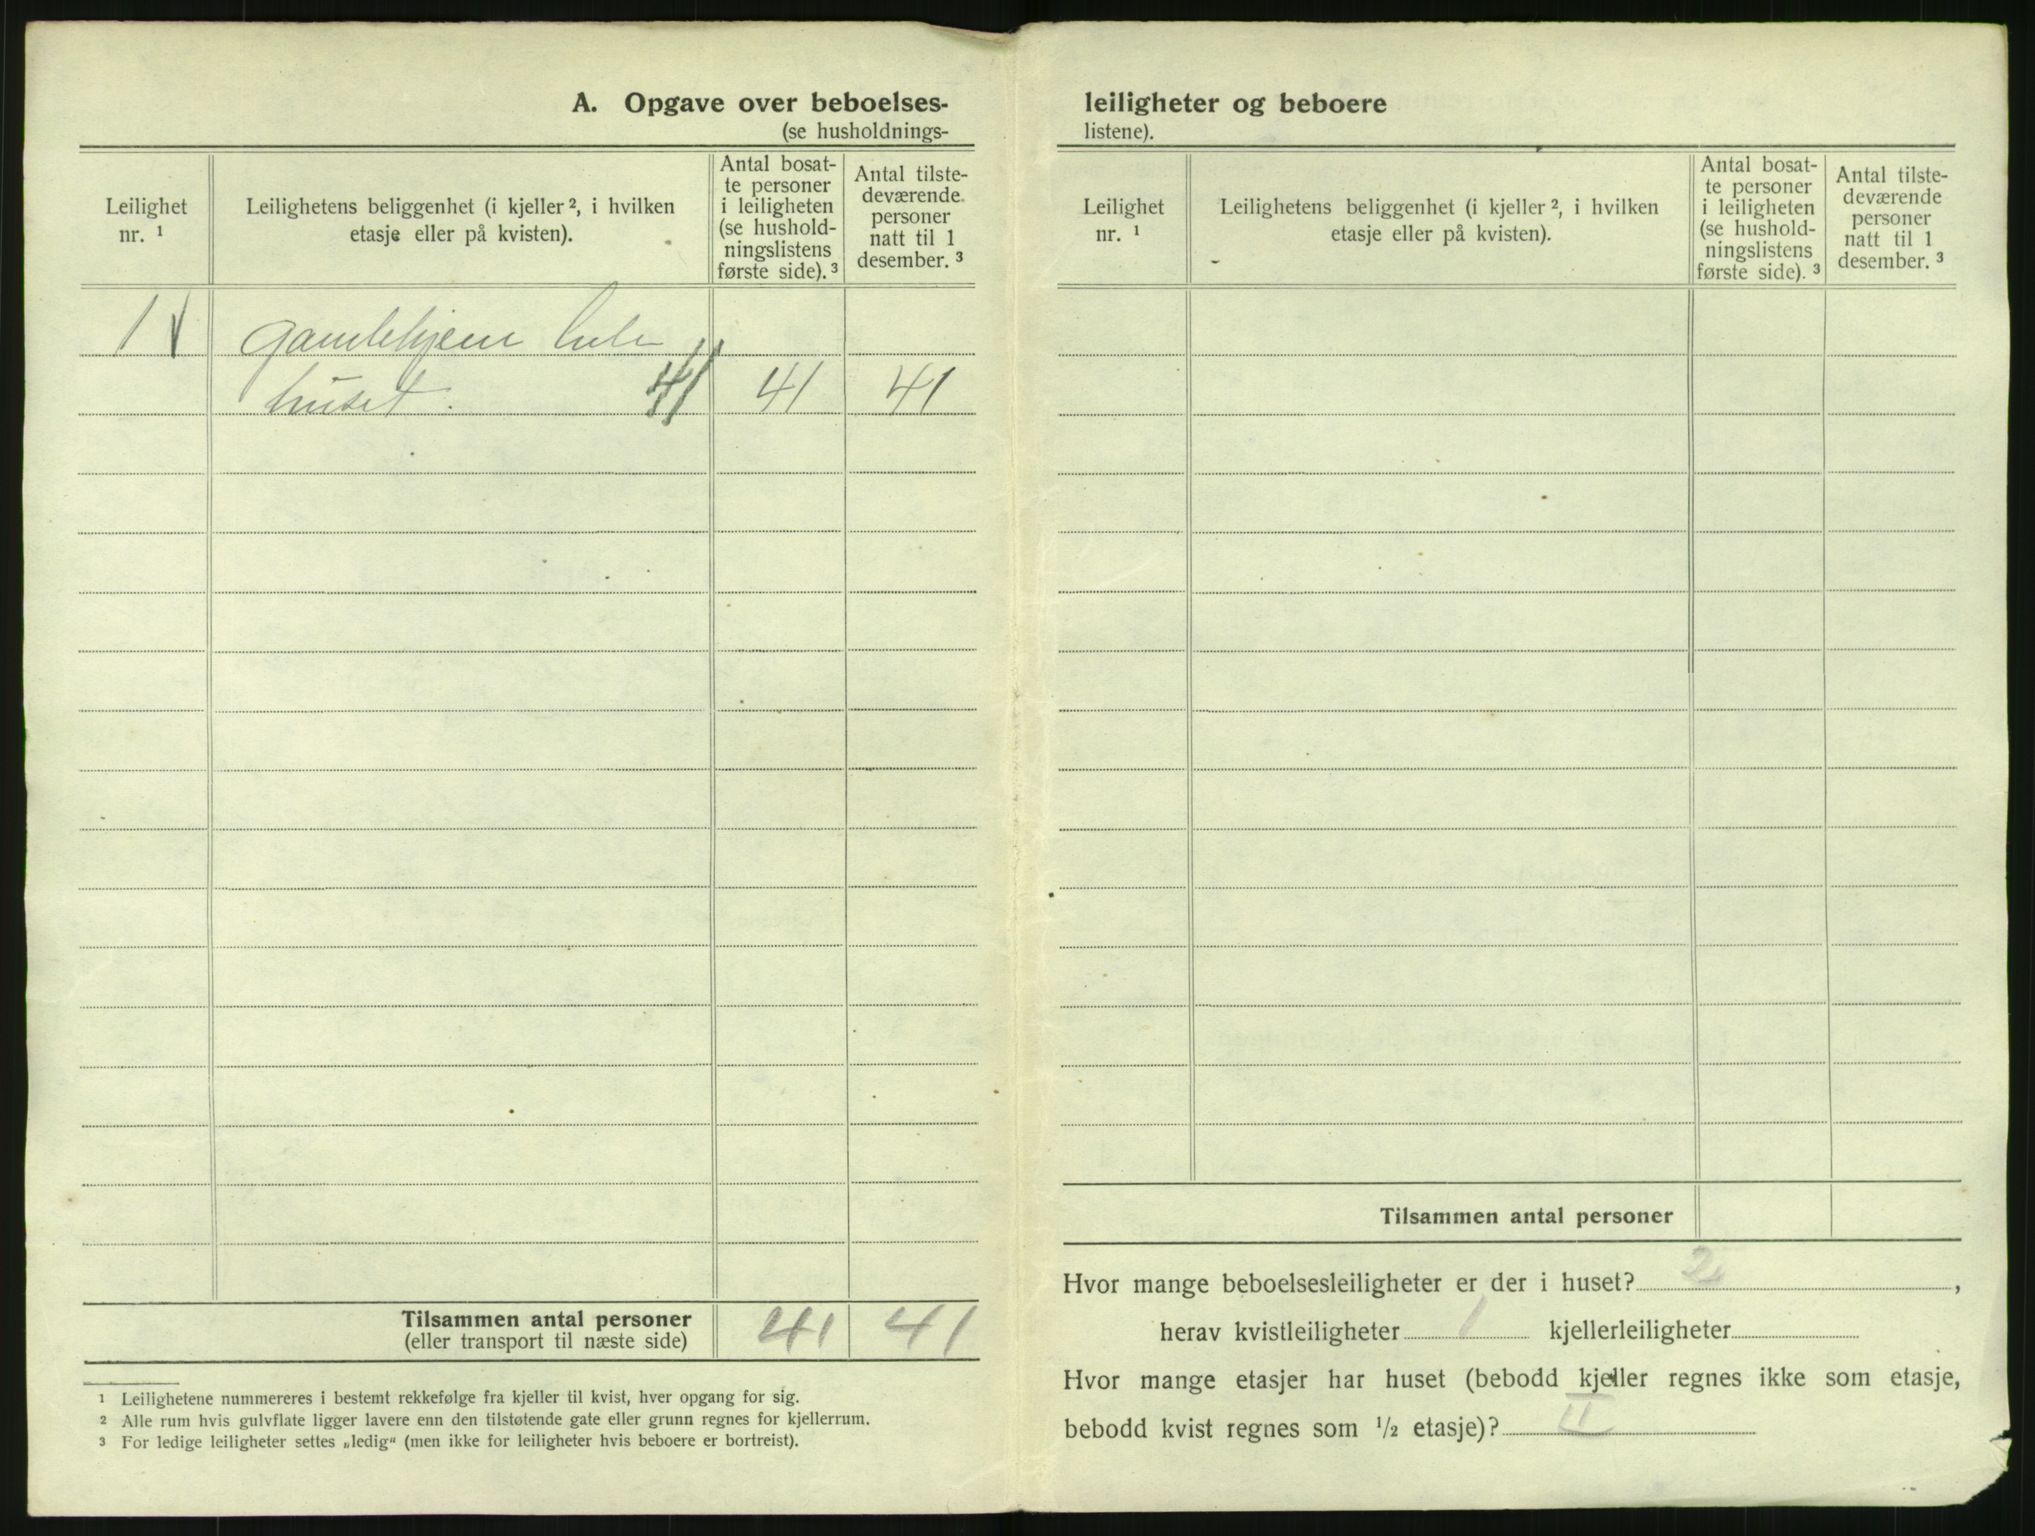 A. Opgave over beboelses-
(se husholdnings-
Leilighet
nr. ¹
Leilighetens beliggenhet (i kjeller ², i hvilken
etasje eller på kvisten).
Antal bosat-
te personer
i leiligheten
(se hushold-
ningslistens
første side). ³
Antal tilste-
deværende
personer
natt til 1
desember. ³
1 Gamlehjem hele
huset. 41 41 41
Tilsammen antal personer 41 41
(eller transport til næste side)
¹ Leilighetene nummereres i bestemt rekkefølge fra kjeller til kvist, hver opgang for sig.
² Alle rum hvis gulvflate ligger lavere enn den tilstøtende gate eller grunn regnes for kjellerrum.
³ For ledige leiligheter settes „ledig“ (men ikke for leiligheter hvis beboere er bortreist).
leiligheter og beboere
listene).
Leilighet
nr. ¹
Leilighetens beliggenhet (i kjeller ², i hvilken
etasje eller på kvisten).
Antal bosat-
te personer
i leiligheten
(se hushold-
ningslistens
første side). ³
Antal tilste-
deværende
personer
natt til 1
desember. ³
Tilsammen antal personer
Hvor mange beboelsesleiligheter er der i huset? 2,
herav kvistleiligheter 1 kjellerleiligheter
Hvor mange etasjer har huset (bebodd kjeller regnes ikke som etasje,
bebodd kvist regnes som ½ etasje)? II